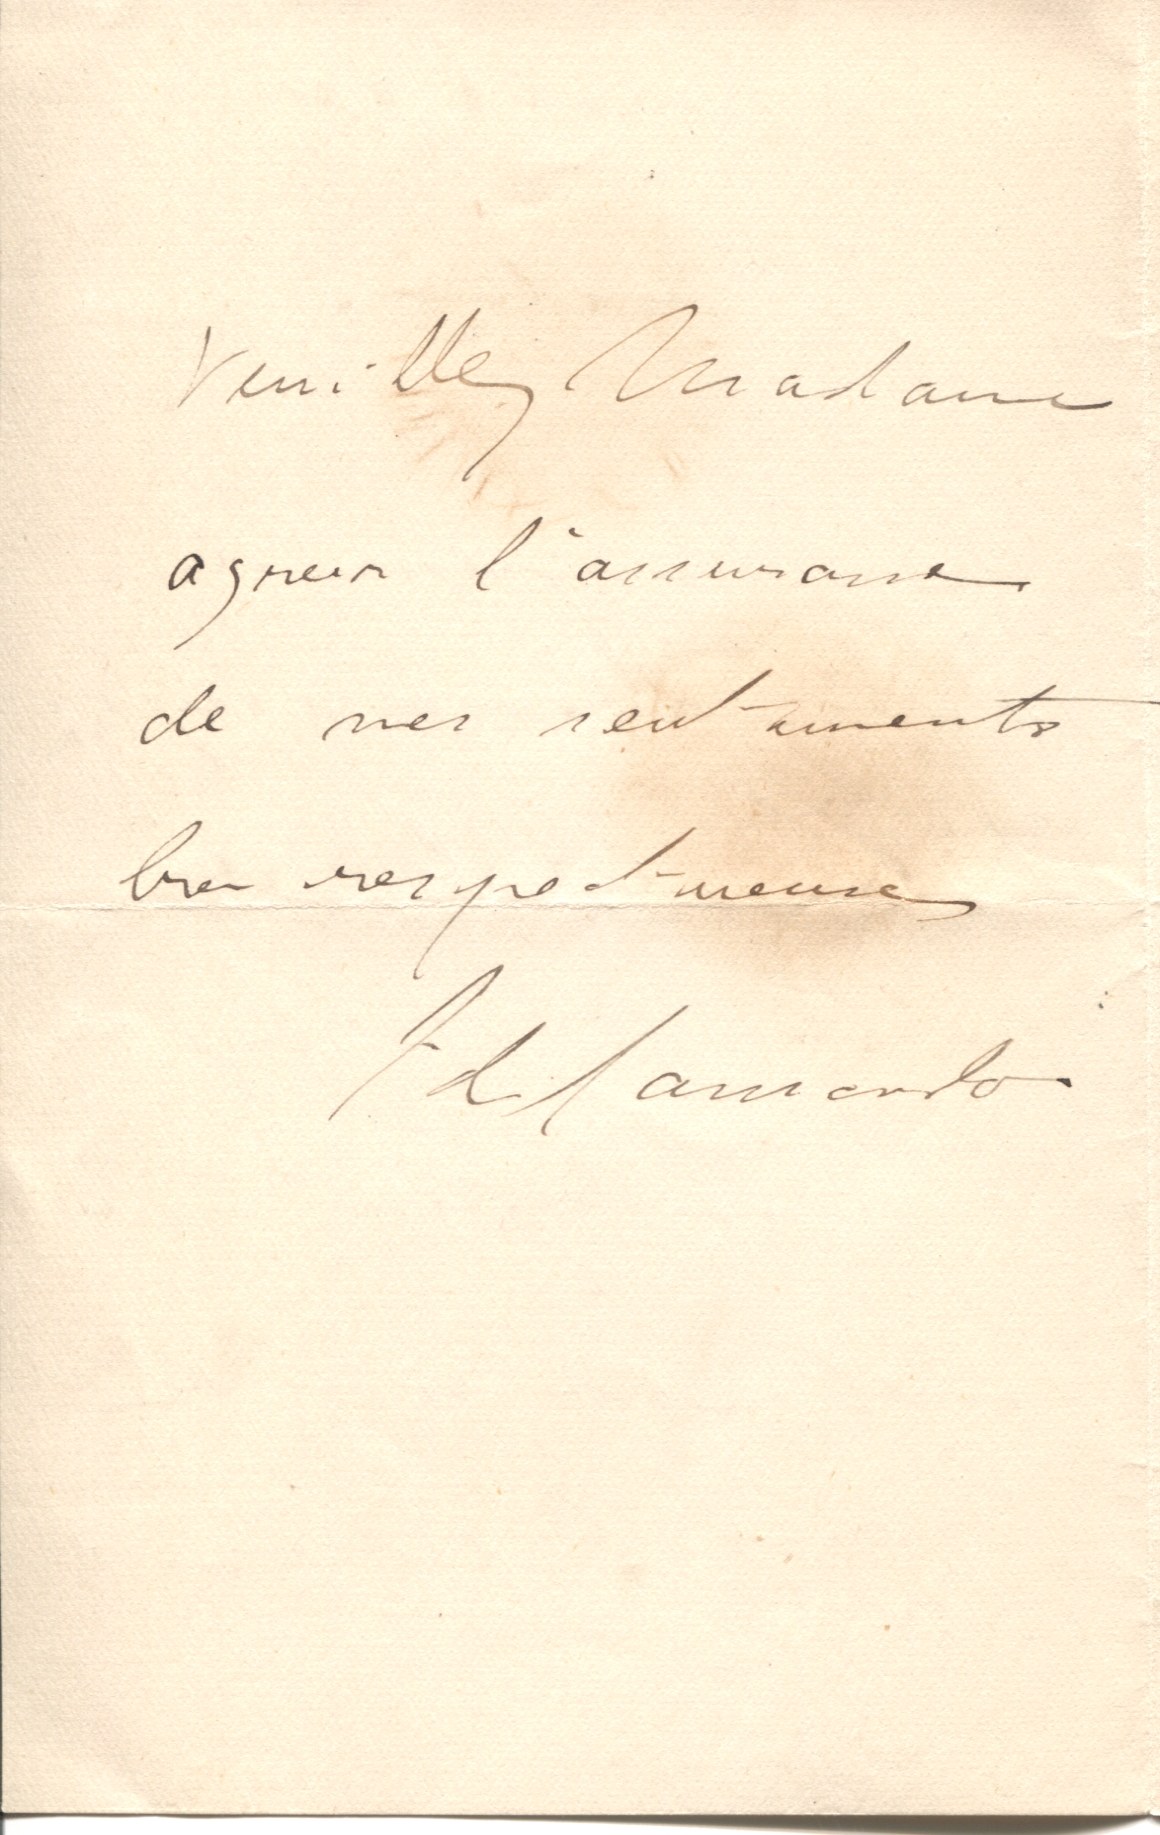 Veuillez Madame
agréer l'assurance
de mes sentiments
bien respectueux